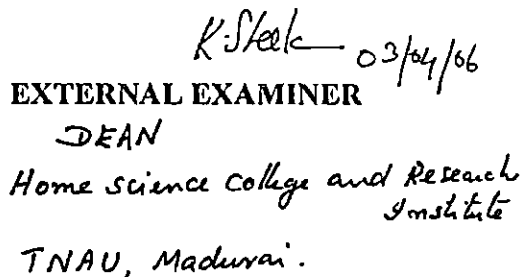 03/04/06
EXTERNAL EXAMINER
DEAN
Home science college and Research
Institute
TNAU, Madurai.